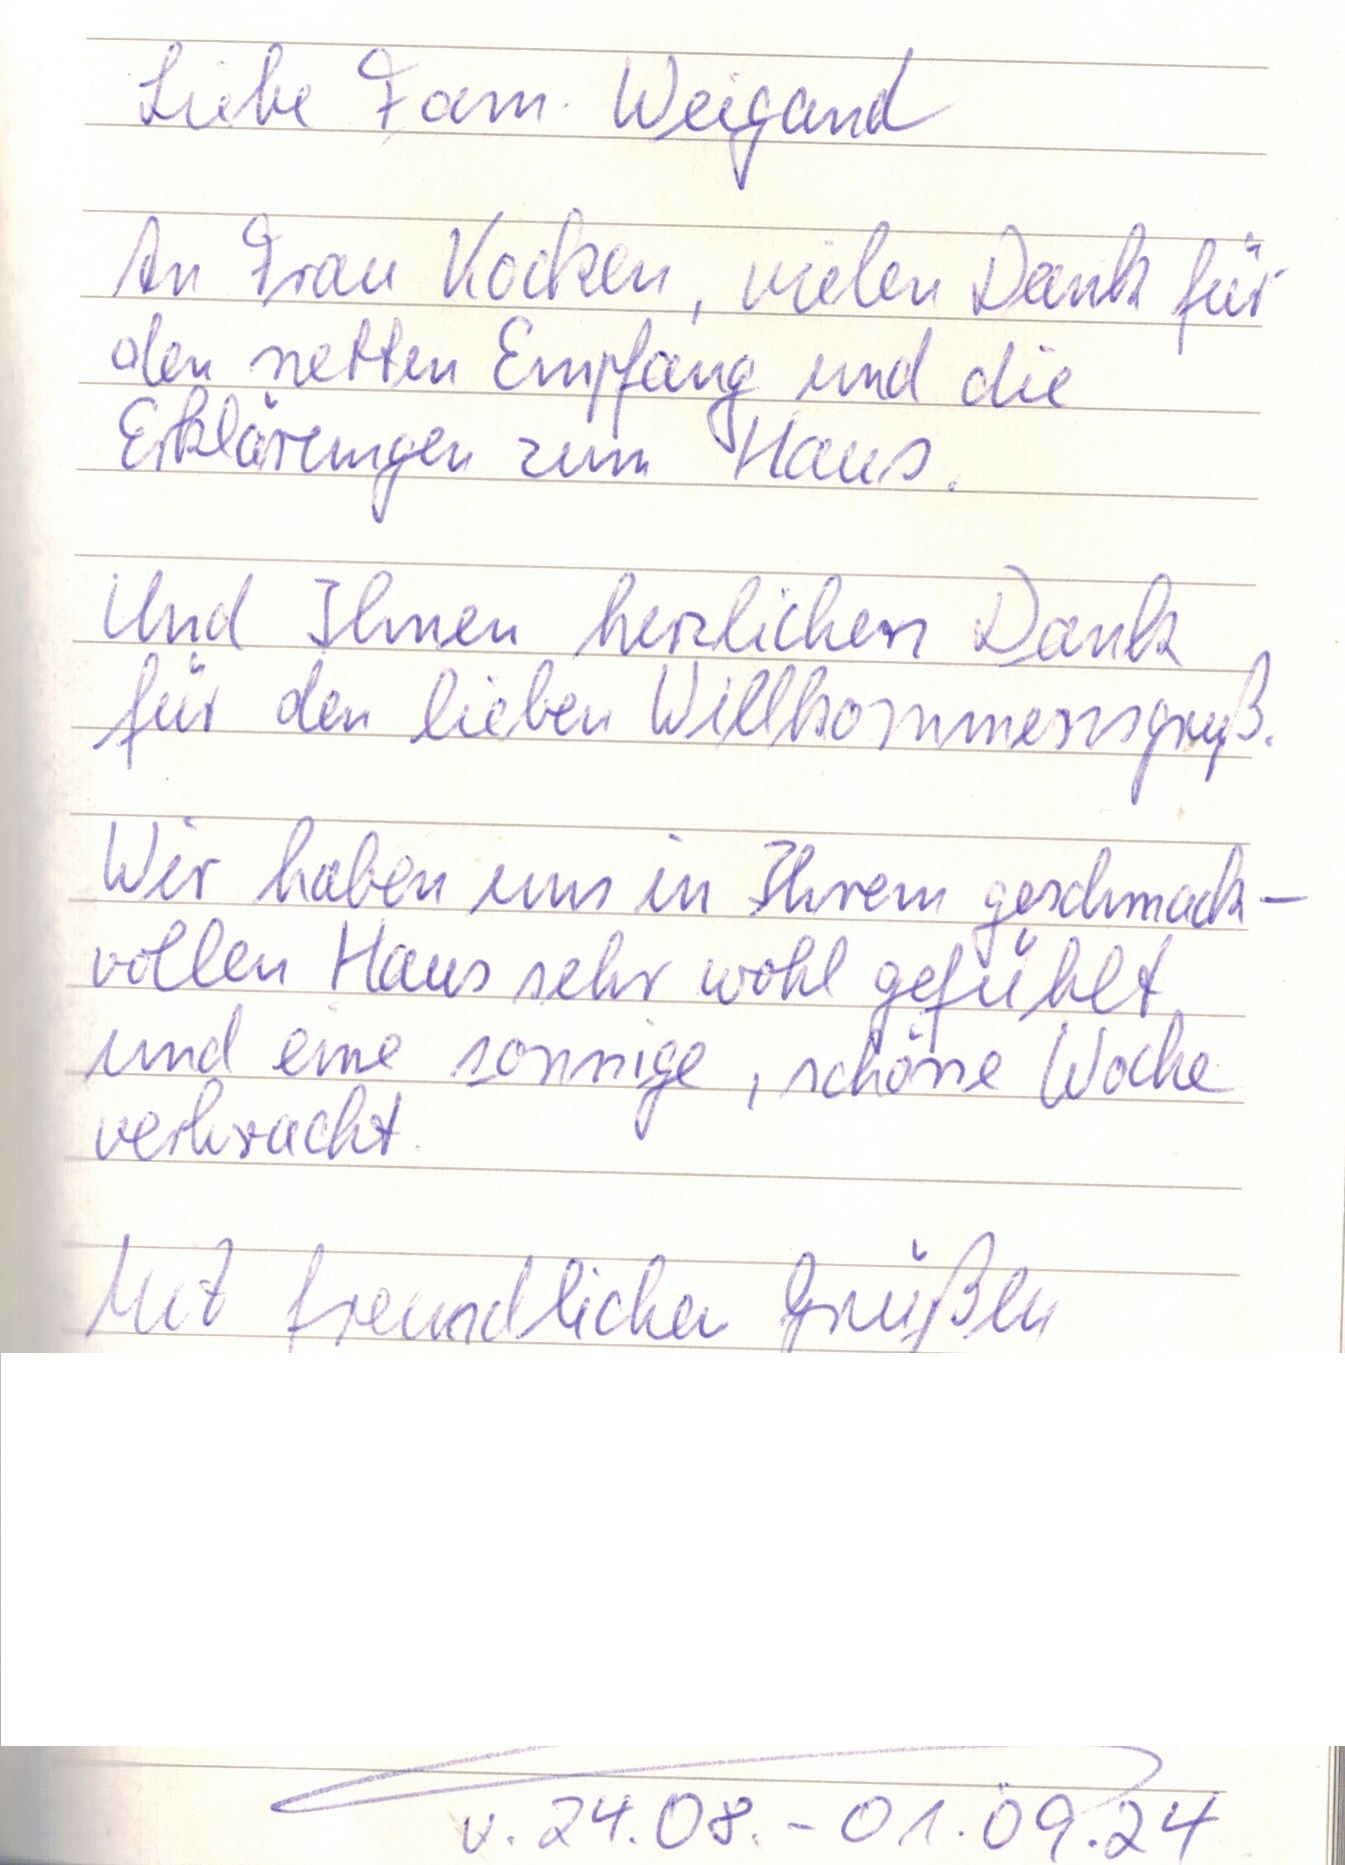 Liebe Fam. Weigand
An Frau Kocken, vielen Dank für
den netten Empfang und die
Erklärungen zum Haus.
Und Ihnen herzlichen Dank
für den lieben Willkommensgruß.
Wir haben uns in Ihrem geschmack-
vollen Haus sehr wohl gefühlt
und eine sonnige, schöne Woche
verbracht.
Mit freundlichen Grüßen
v. 24.08. - 01.09.24